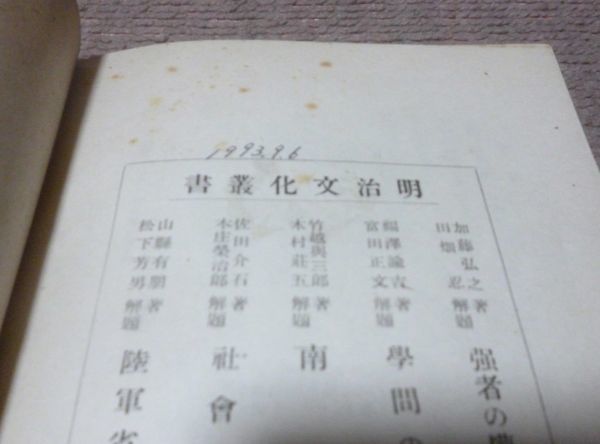 1993.9.6
明治文化叢書
加藤弘之著
田畑忍解題
强者の
福澤諭吉著
富田正文解題
學問の
竹越與三郎著
木村莊五解題
南
佐田介石著
本庄榮治郎解題
社會
山縣有朋著
松下芳男解題
陸軍省